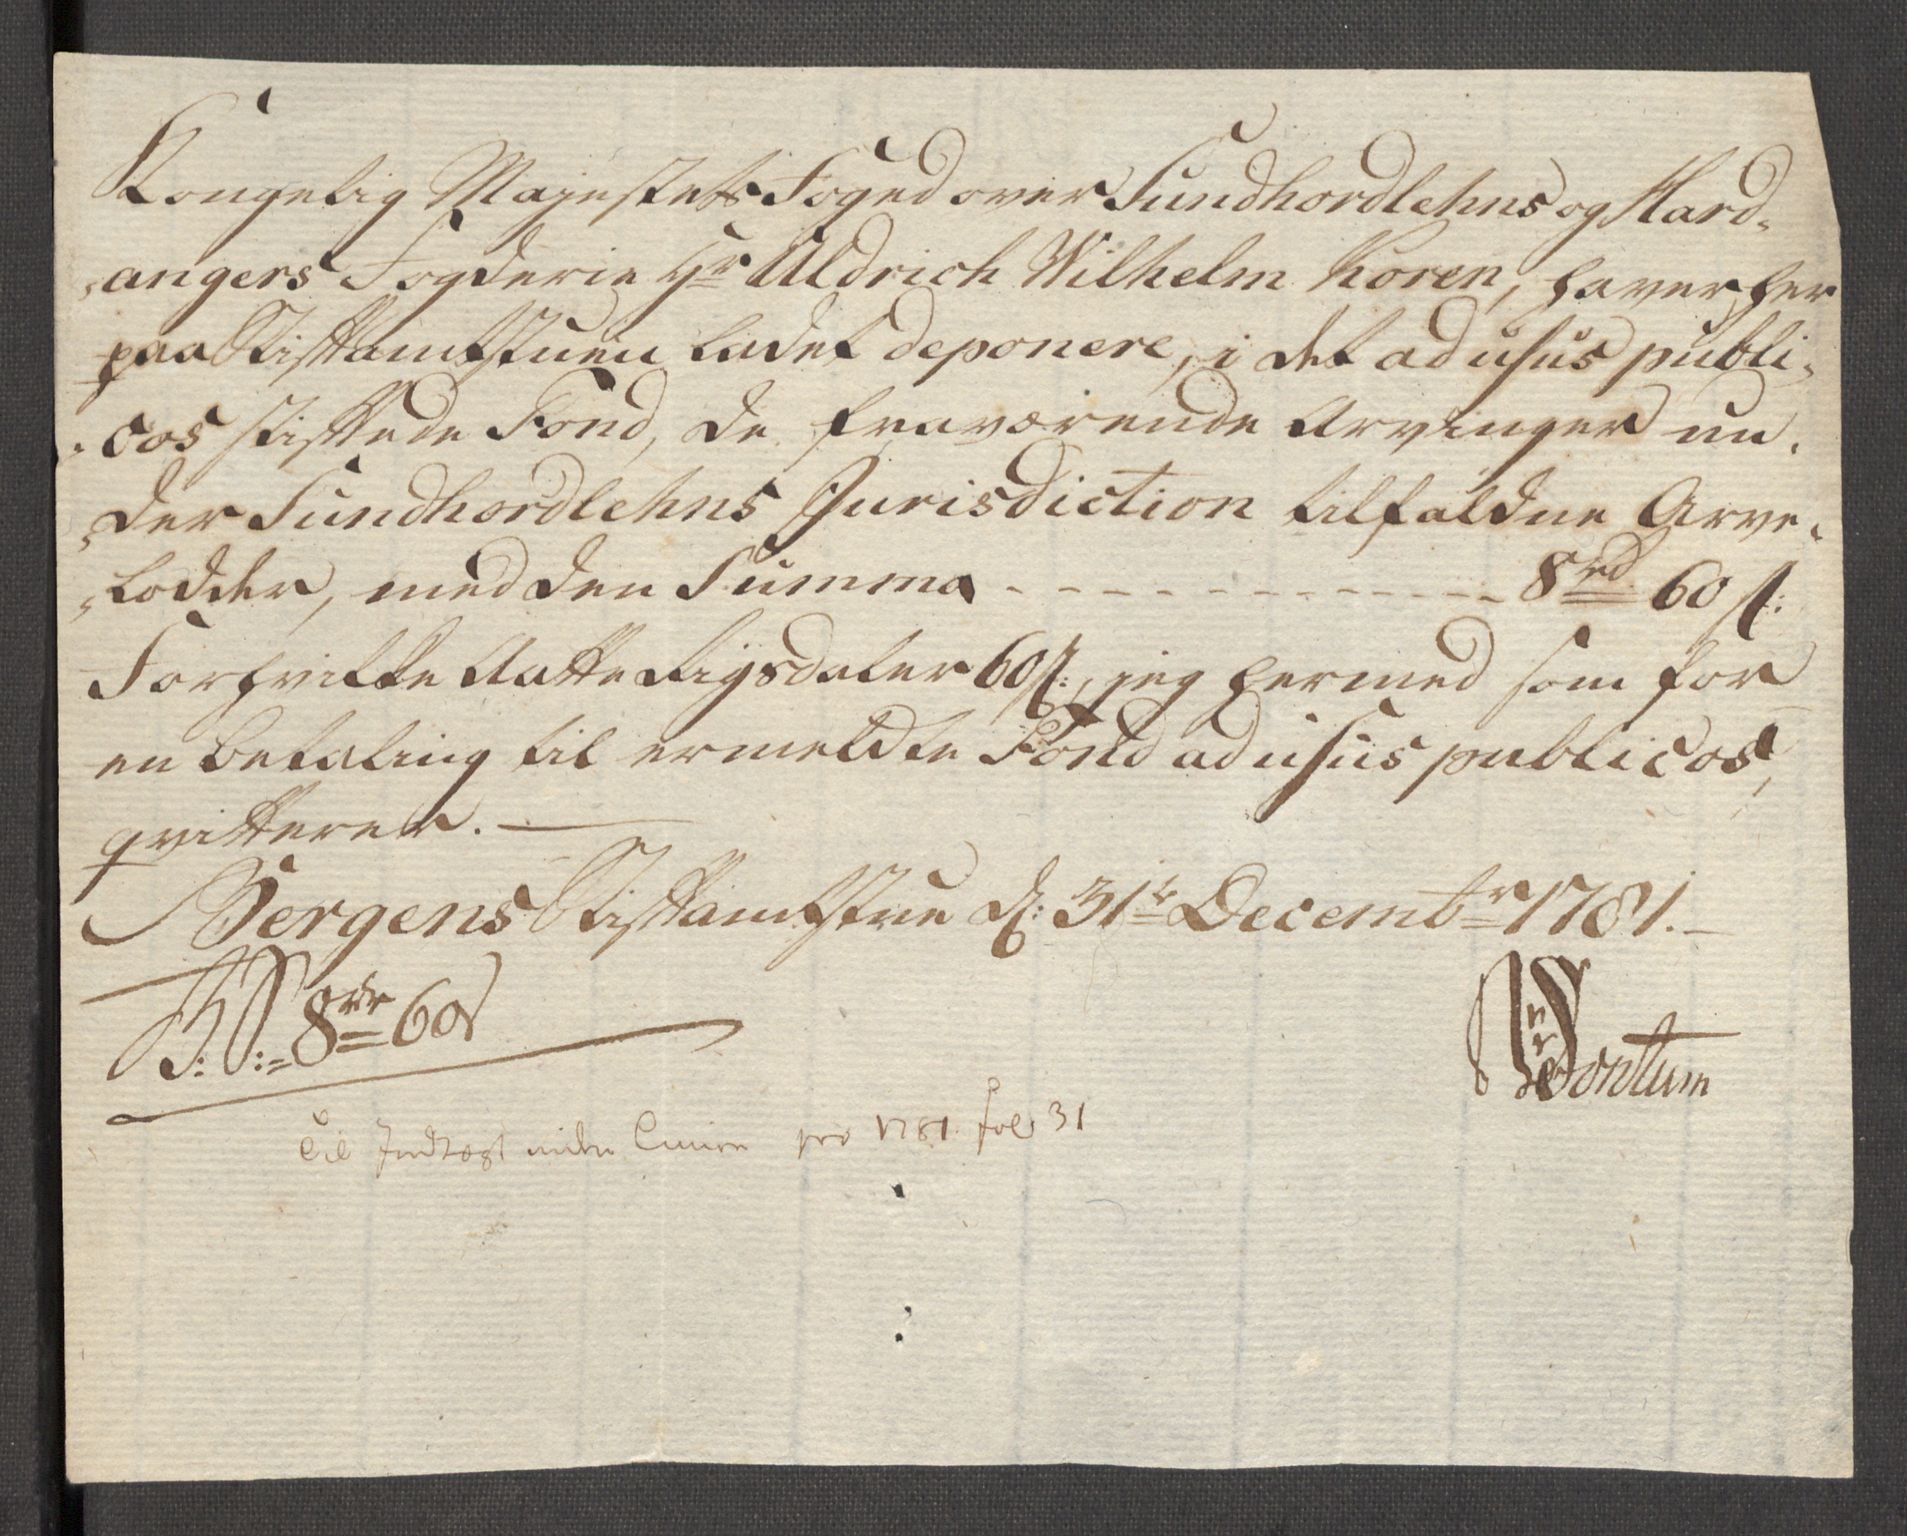 Kongelig Majestets Foged over Sundhordlehns og Hard-
angers Fogderie Hr Uldrich Wilhelm Koren, haver her
paa Stiftamtstuen ladet deponere, i det ad usus publi-
cos stiftede Fond, de fraværende Arvinger un-
der Sundhordlehns Jurisdiction tilfaldne Arve-
Lodder, med den Summa - - - - - - - - - - - - - 8rd 60 s:
For hvilke Aatte Rigsdaler 60 s:, jeg hermed som for
en betaling til ermeldte Fond ad usus publicos,
qvitterer. —
Bergens Stiftamtstue d: 31te Decembr 1781. —
8 60
Wontum
til Indtægt pro 1781 fol 31